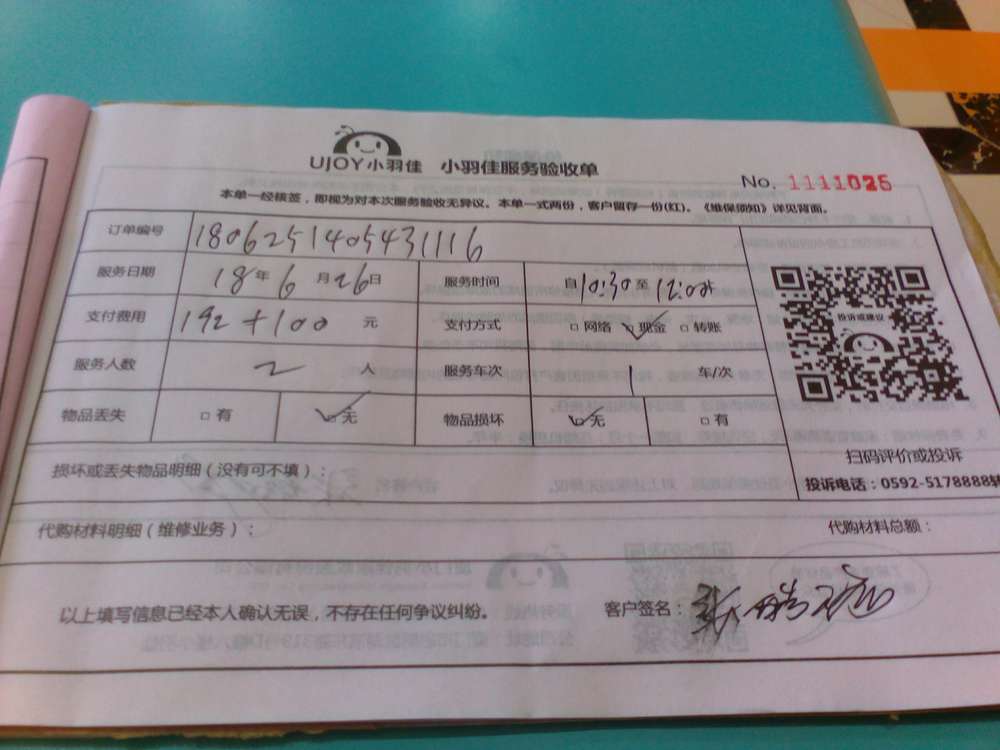 UJOY小羽佳 小羽佳服务验收单
No. 1111025
本单一经核签，即视为对本次服务验收无异议。本单一式两份，客户留存一份(红)。《维保须知》详见背面。
订单编号 1806251405431116
服务日期 18年6月26日 服务时间 自10:30至12:00
支付费用 192+100 元 支付方式 □网络 ☑现金 □转账
服务人数 2 人 服务车次 1 车/次
物品丢失 □有 ☑无 物品损坏 ☑无 □有
投诉或建议
扫码评价或投诉
投诉电话：0592-5178888转
损坏或丢失物品明细（没有可不填）：
代购材料明细（维修业务）： 代购材料总额：
以上填写信息已经本人确认无误，不存在任何争议纠纷。 客户签名：